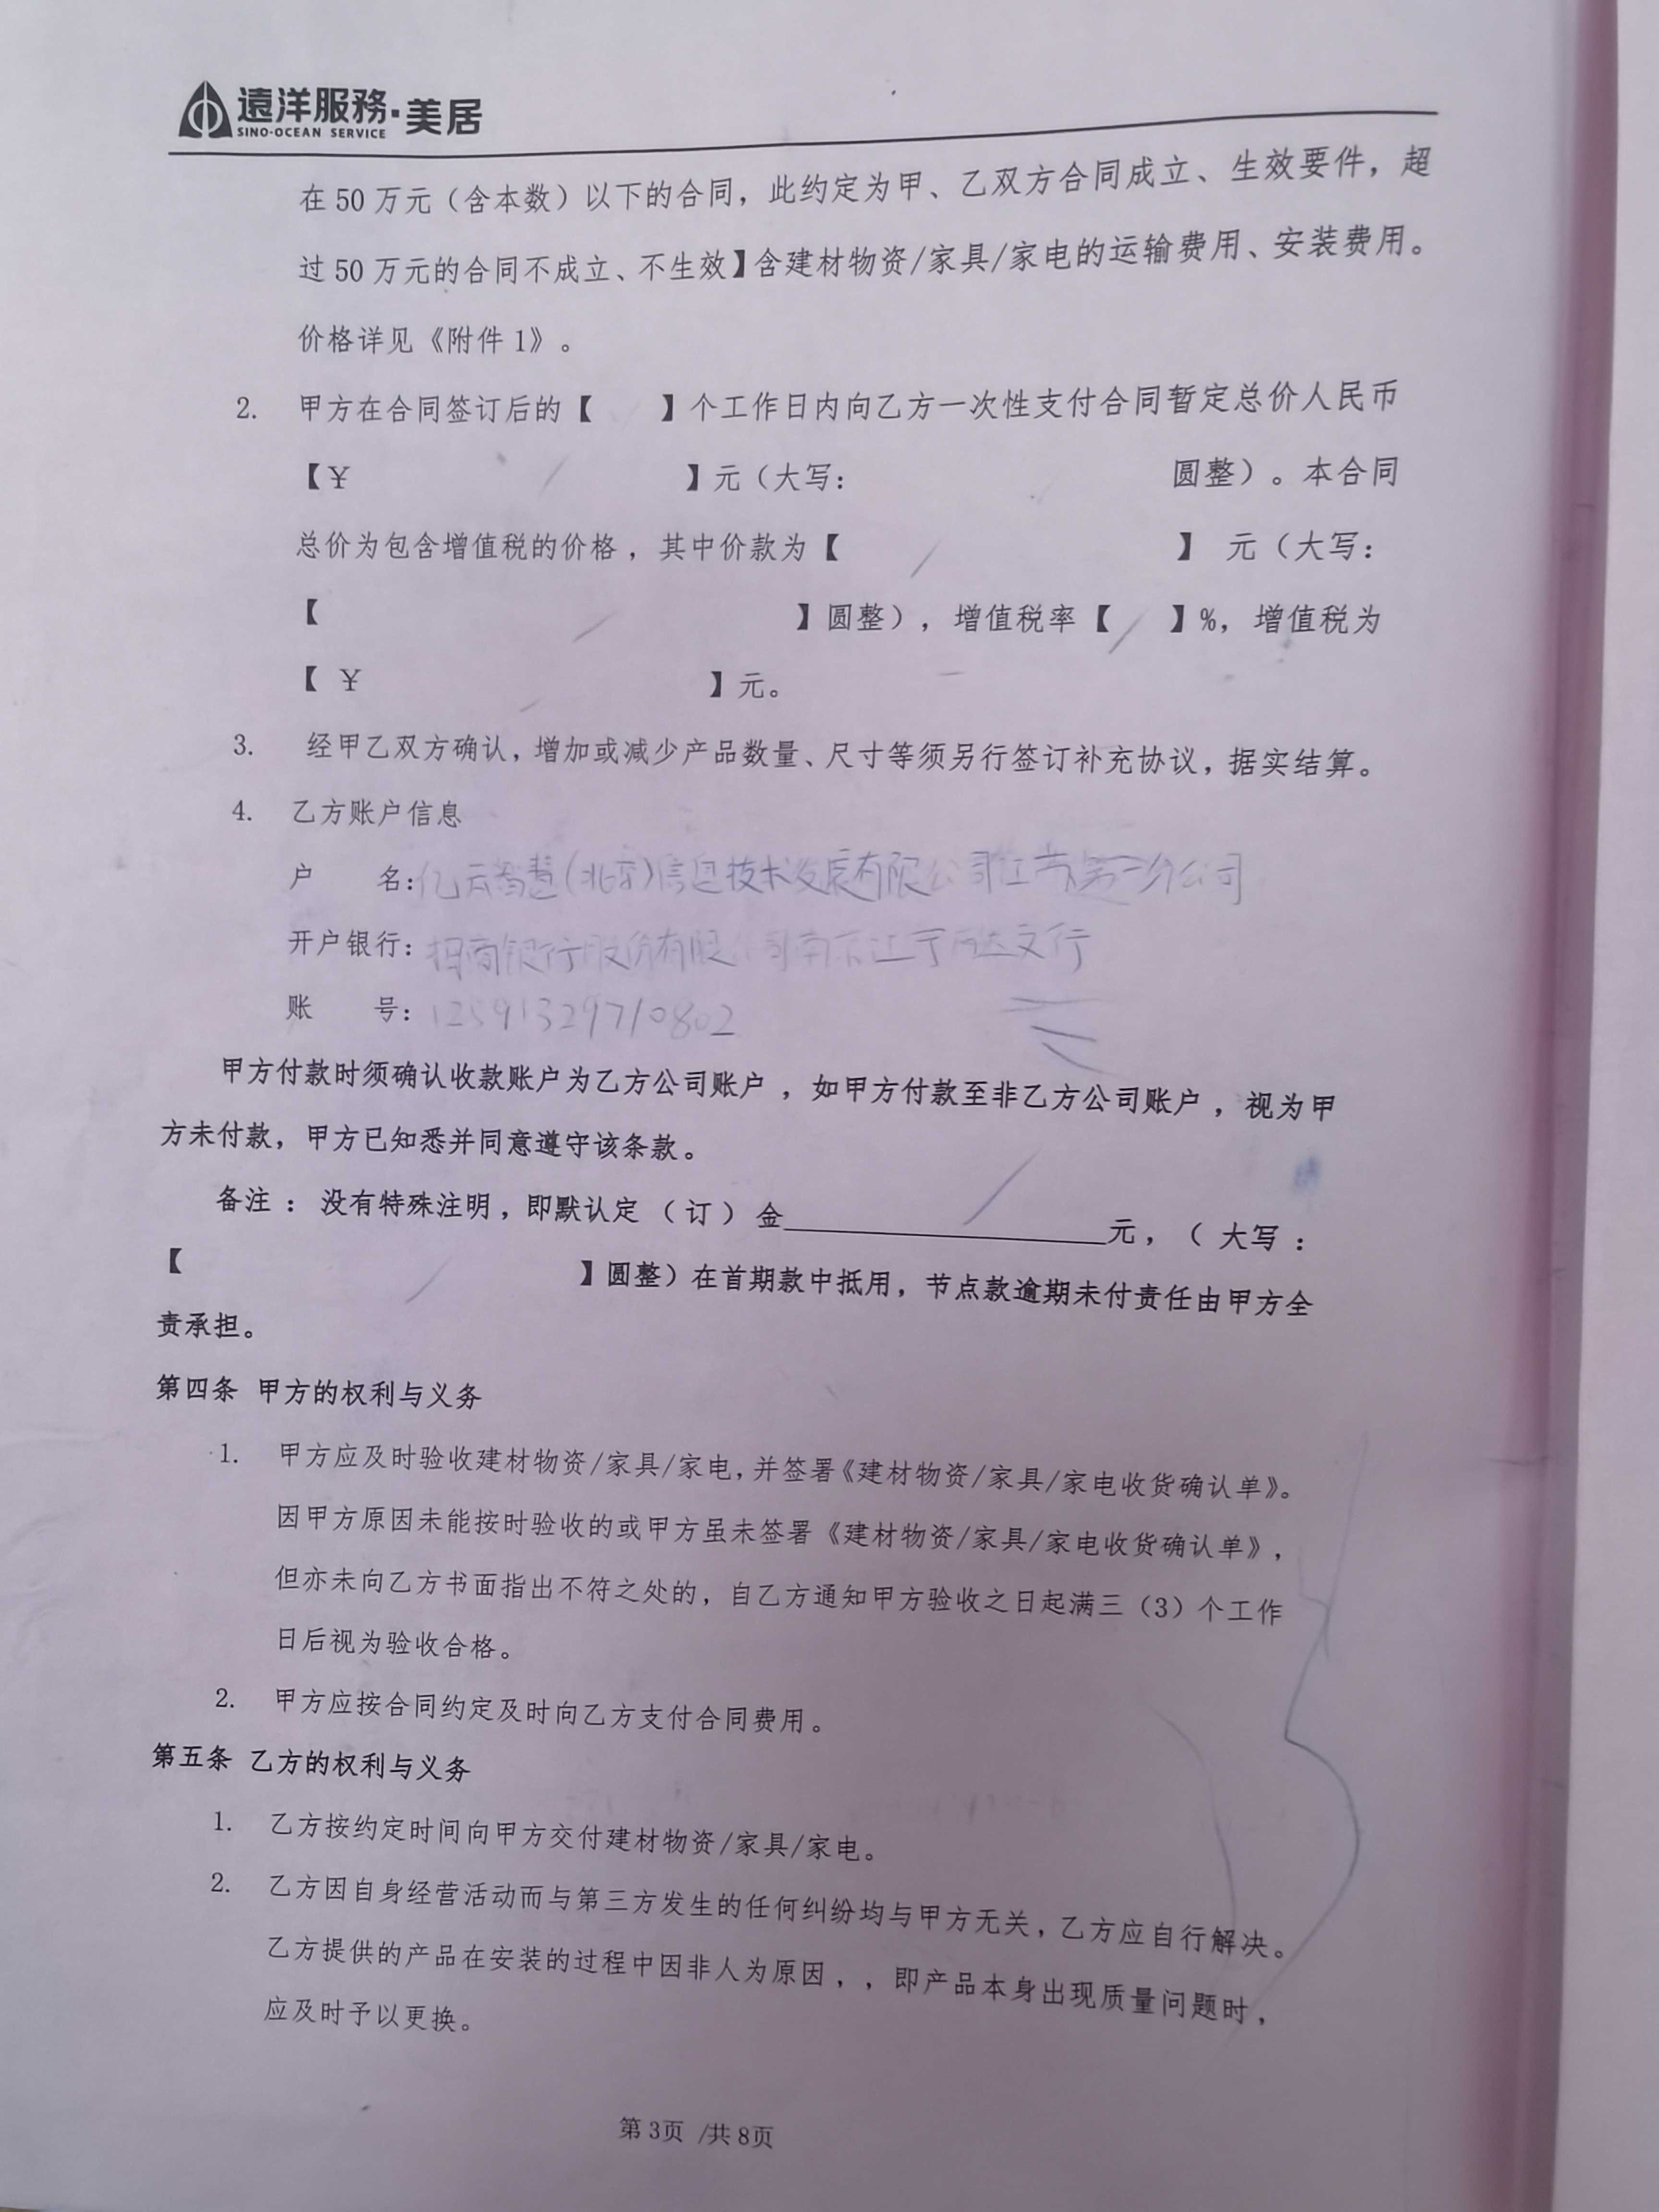 遠洋服務·美居
SINO-OCEAN SERVICE
在 50 万元（含本数）以下的合同，此约定为甲、乙双方合同成立、生效要件，超
过 50 万元的合同不成立、不生效】含建材物资/家具/家电的运输费用、安装费用。
价格详见《附件 1》。
2. 甲方在合同签订后的【 】个工作日内向乙方一次性支付合同暂定总价人民币
【￥ 】元（大写： 圆整）。本合同
总价为包含增值税的价格，其中价款为【 】 元（大写：
【 】圆整），增值税率【 】%，增值税为
【 ￥ 】元。
3. 经甲乙双方确认，增加或减少产品数量、尺寸等须另行签订补充协议，据实结算。
4. 乙方账户信息
户 名：亿云智慧(北京)信息技术发展有限公司江苏第二分公司
开户银行：招商银行股份有限 司南京江宁 支行
账 号：12591329710802
甲方付款时须确认收款账户为乙方公司账户，如甲方付款至非乙方公司账户，视为甲
方未付款，甲方已知悉并同意遵守该条款。
备注：没有特殊注明，即默认定（订）金 元，（大写：
【 】圆整）在首期款中抵用，节点款逾期未付责任由甲方全
责承担。
第四条 甲方的权利与义务
1. 甲方应及时验收建材物资/家具/家电，并签署《建材物资/家具/家电收货确认单》。
因甲方原因未能按时验收的或甲方虽未签署《建材物资/家具/家电收货确认单》，
但亦未向乙方书面指出不符之处的，自乙方通知甲方验收之日起满三（3）个工作
日后视为验收合格。
2. 甲方应按合同约定及时向乙方支付合同费用。
第五条 乙方的权利与义务
1. 乙方按约定时间向甲方交付建材物资/家具/家电。
2. 乙方因自身经营活动而与第三方发生的任何纠纷均与甲方无关，乙方应自行解决。
乙方提供的产品在安装的过程中因非人为原因，，即产品本身出现质量问题时，
应及时予以更换。
第 3页 /共 8页